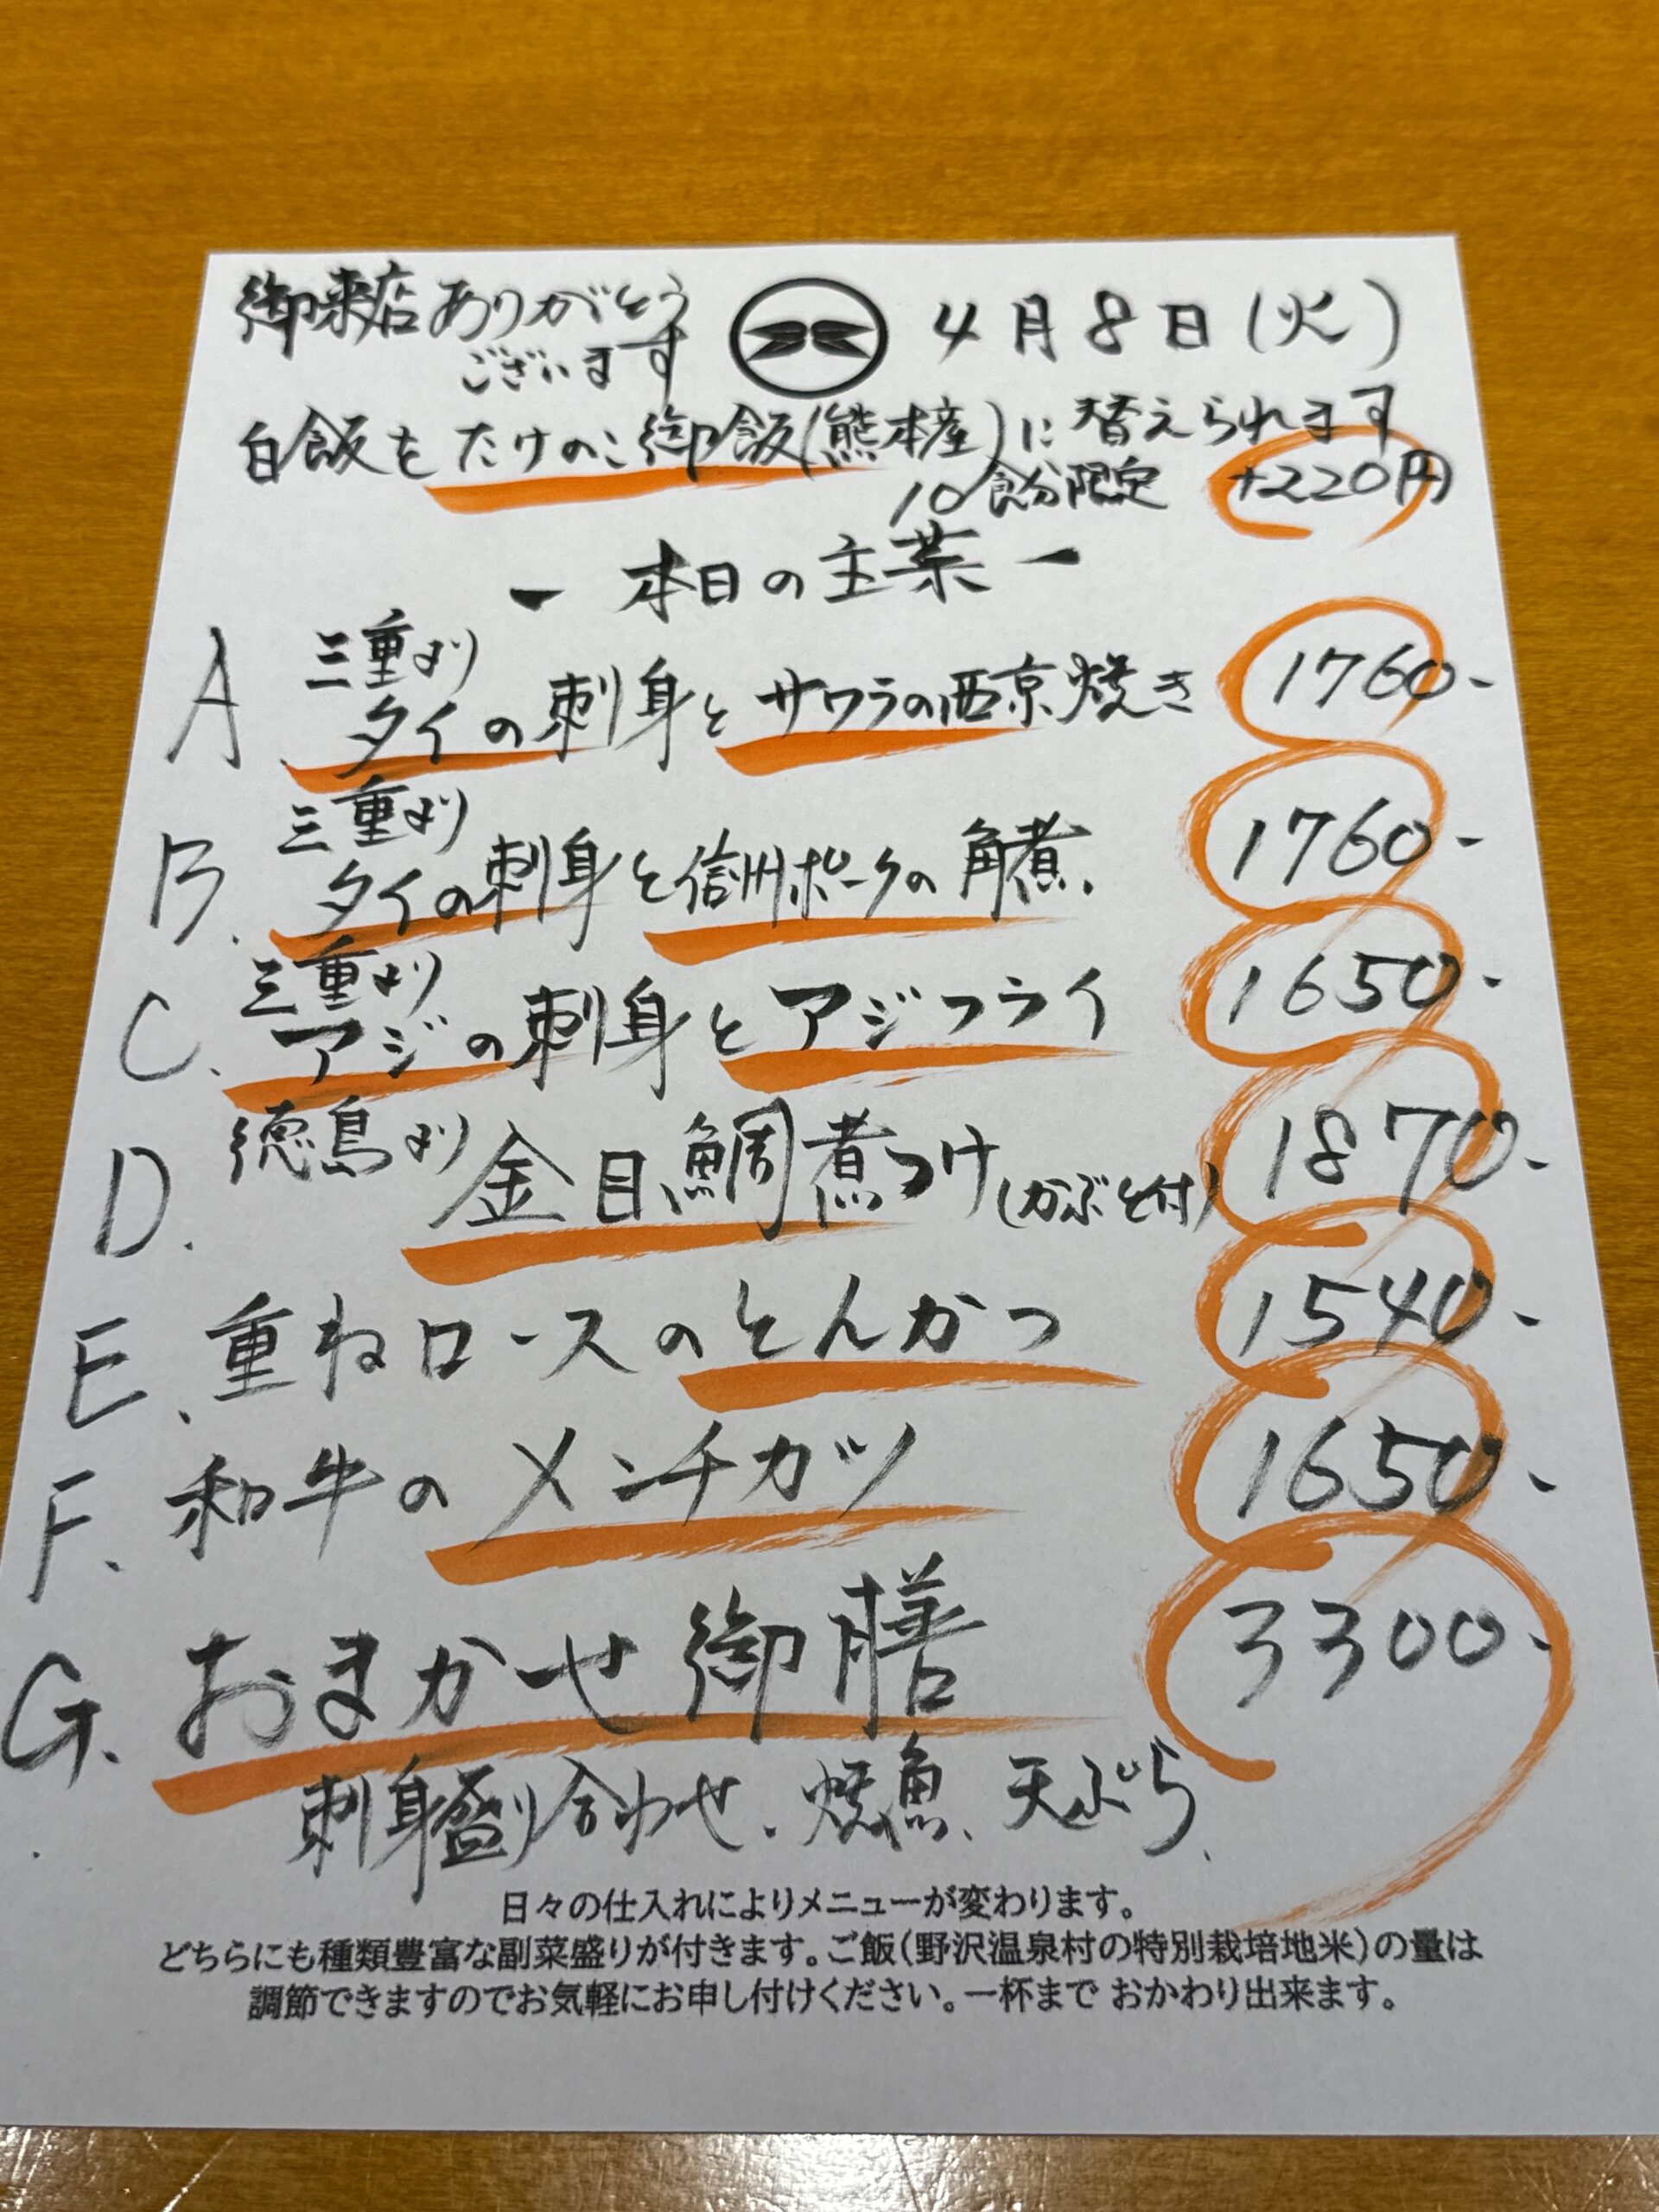 御来店ありがとう
ございます
4月8日(火)
白飯をたけのこ御飯(熊本産)に替えられます
10食分限定 +220円
ー 本日の主菜 ー
A 三重より
タイの刺身とサワラの西京焼き 1760-
B. 三重より
タイの刺身と信州ポークの角煮. 1760-
C. 三重より
アジの刺身とアジフライ 1650-
D. 徳島より 金目鯛煮つけ(かぶと付) 1870-
E. 重ねロースのとんかつ 1540-
F. 和牛のメンチカツ 1650-
G. おまかせ御膳 3300-
刺身盛り合わせ、焼魚、天ぷら、
日々の仕入れによりメニューが変わります。
どちらにも種類豊富な副菜盛りが付きます。ご飯(野沢温泉村の特別栽培地米)の量は
調節できますのでお気軽にお申し付けください。一杯まで おかわり出来ます。